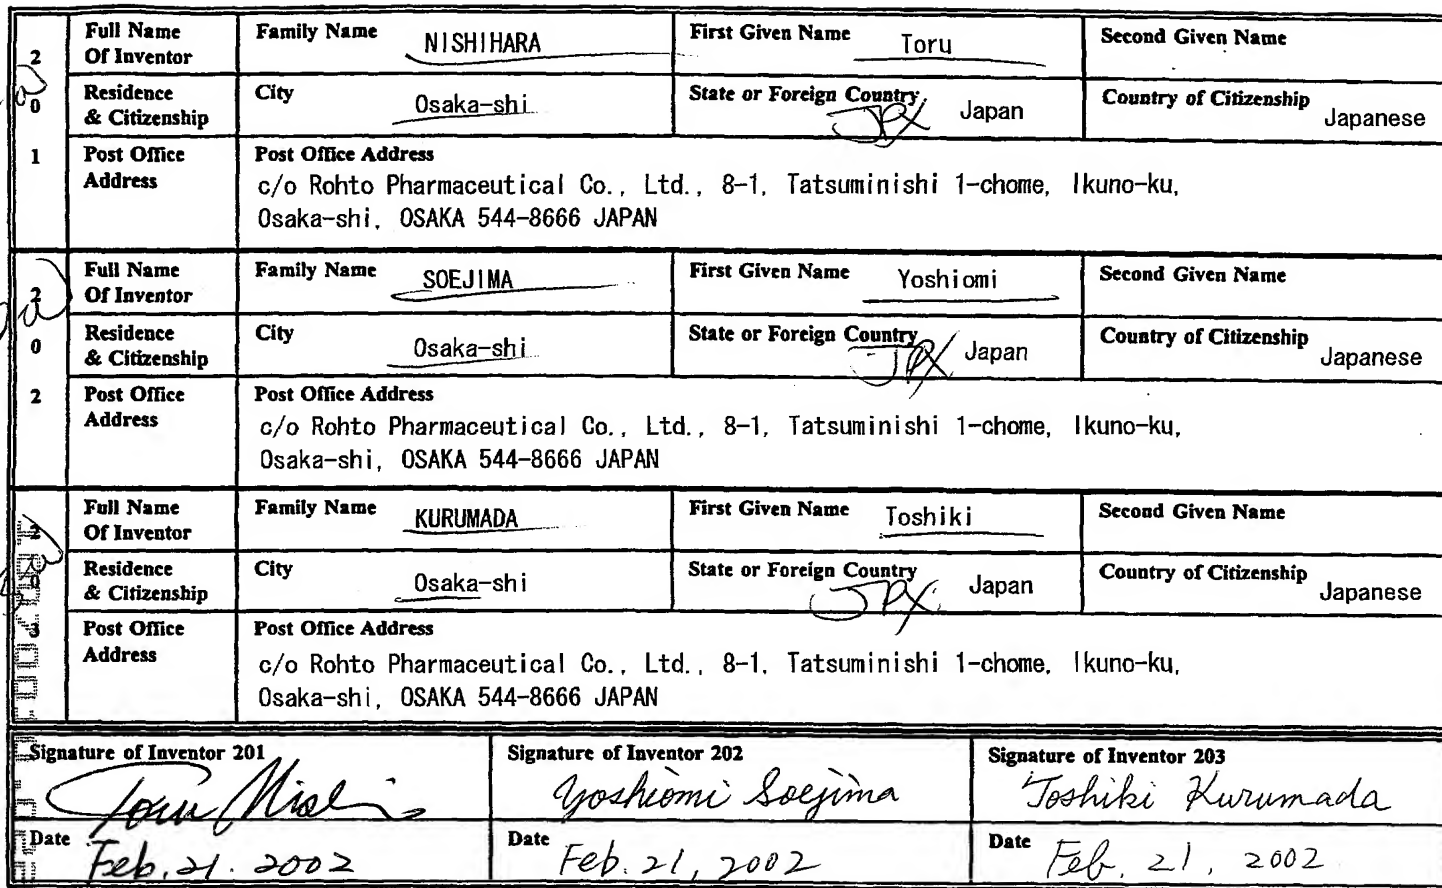 2 0 1
Full Name Of Inventor Family Name NISHIHARA First Given Name Toru Second Given Name
Residence & Citizenship City Osaka-shi State or Foreign Country JPX Japan Country of Citizenship Japanese
Post Office Address Post Office Address
c/o Rohto Pharmaceutical Co., Ltd., 8-1, Tatsuminishi 1-chome, Ikuno-ku,
Osaka-shi, OSAKA 544-8666 JAPAN
2 0 2
Full Name Of Inventor Family Name SOEJIMA First Given Name Yoshiomi Second Given Name
Residence & Citizenship City Osaka-shi State or Foreign Country JPX Japan Country of Citizenship Japanese
Post Office Address Post Office Address
c/o Rohto Pharmaceutical Co., Ltd., 8-1, Tatsuminishi 1-chome, Ikuno-ku,
Osaka-shi, OSAKA 544-8666 JAPAN
2 0 3
Full Name Of Inventor Family Name KURUMADA First Given Name Toshiki Second Given Name
Residence & Citizenship City Osaka-shi State or Foreign Country JPX Japan Country of Citizenship Japanese
Post Office Address Post Office Address
c/o Rohto Pharmaceutical Co., Ltd., 8-1, Tatsuminishi 1-chome, Ikuno-ku,
Osaka-shi, OSAKA 544-8666 JAPAN
Signature of Inventor 201 Signature of Inventor 202 Signature of Inventor 203
Yoshiomi Soejima Toshiki Kurumada
Date Feb. 21. 2002 Date Feb. 21, 2002 Date Feb. 21, 2002